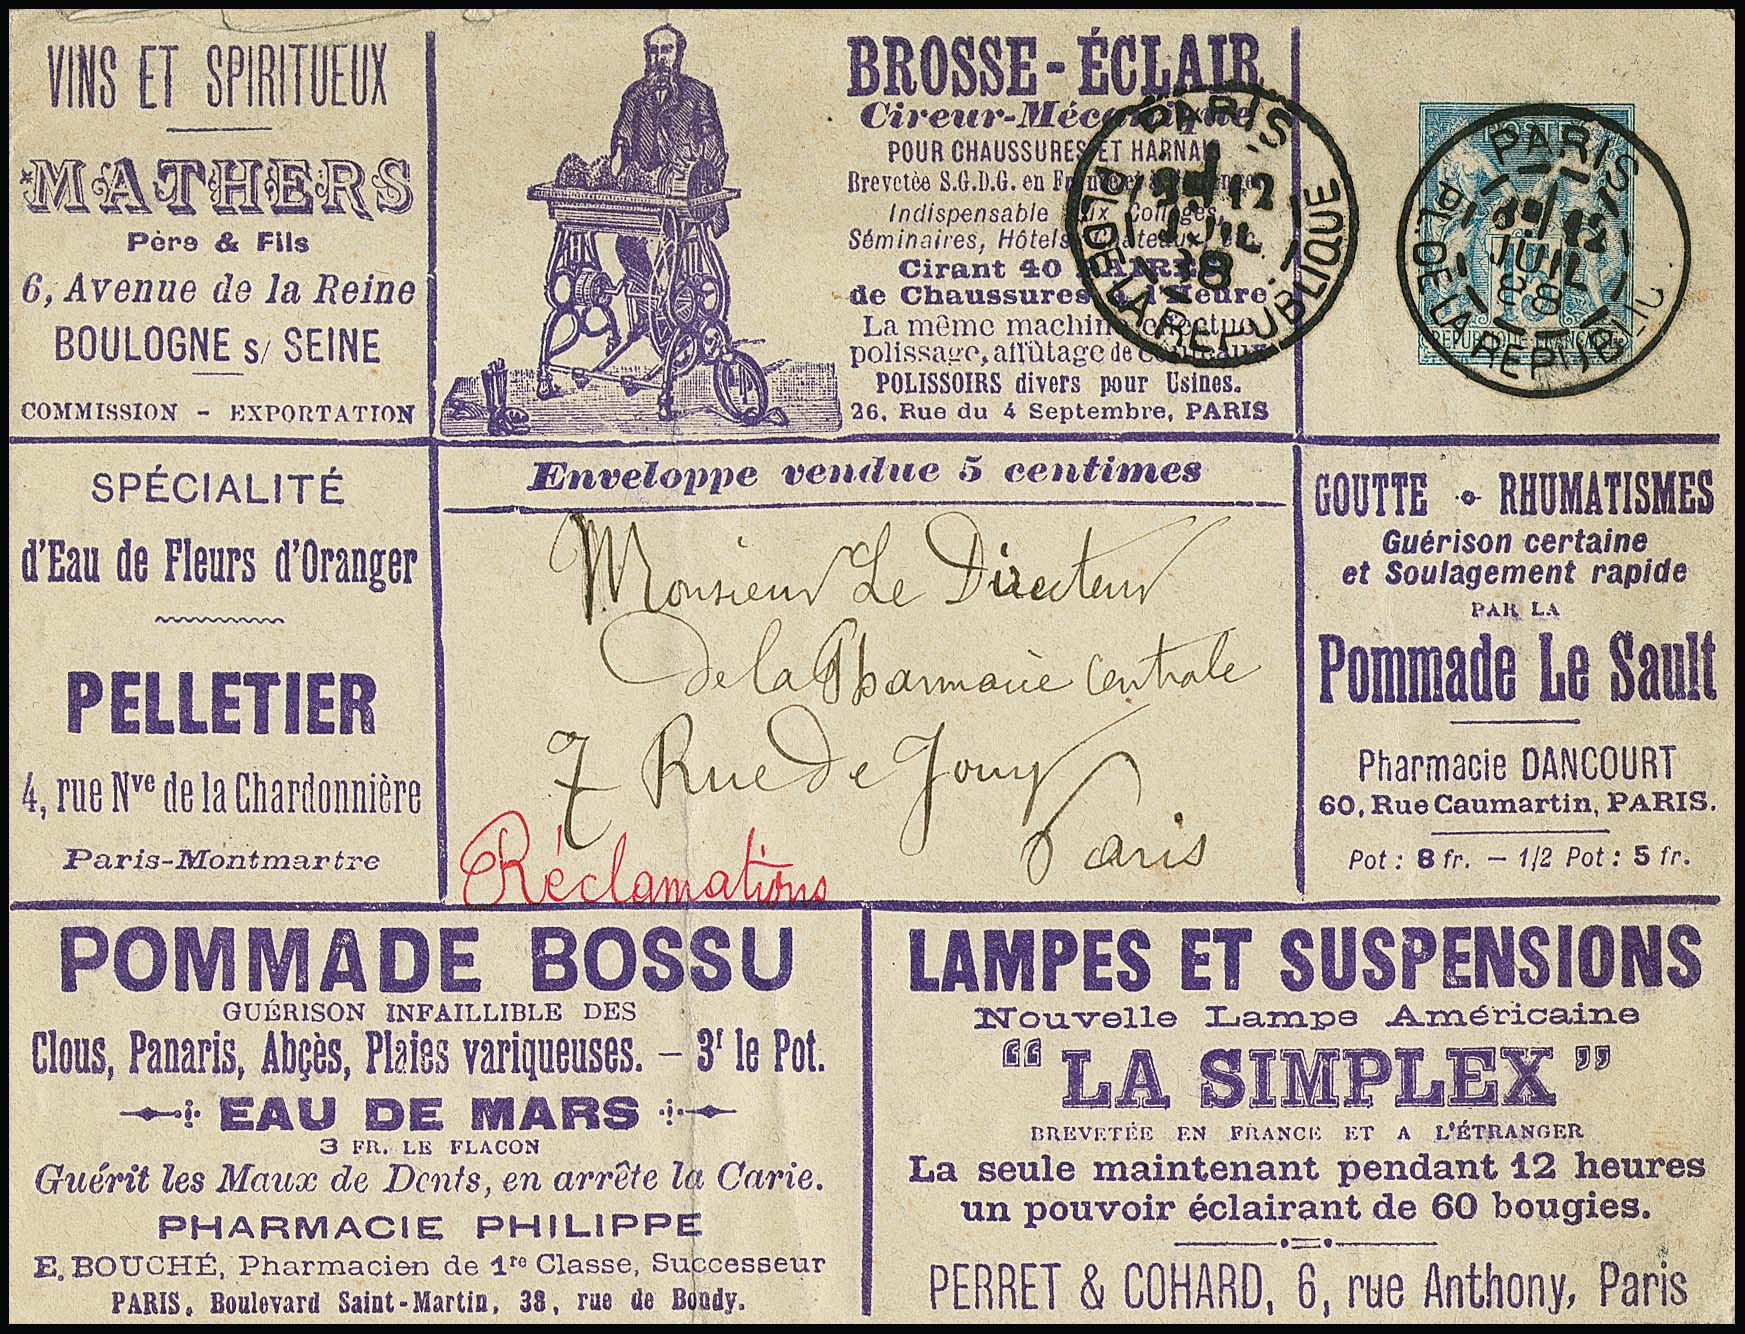 VINS ET SPIRITUEUX
MATHERS
Père & Fils
6, Avenue de la Reine
BOULOGNE s/ SEINE
COMMISSION - EXPORTATION
BROSSE-ÉCLAIR
Cireur-Mécanique
POUR CHAUSSURES ET HARNAIS
Brevetée S.G.D.G. en France et à l'Étranger
Indispensable aux Collèges,
Séminaires, Hôtels, Châteaux, etc.
Cirant 40 PAIRES
de Chaussures à l'Heure
La même machine effectue
polissage, affûtage de couteaux
POLISSOIRS divers pour Usines.
26, Rue du 4 Septembre, PARIS
PARIS
12
JUIL
88
PL. DE LA REPUBLIQUE
PARIS
12
JUIL
88
PL. DE LA REPUBLIQ
15
REPUBLIQUE FRANÇAISE
Enveloppe vendue 5 centimes
Monsieur Le Directeur
de la Pharmacie centrale
7 Rue de Jouy
Paris
Réclamations
SPÉCIALITÉ
d'Eau de Fleurs d'Oranger
PELLETIER
4, rue Nve de la Chardonnière
Paris-Montmartre
GOUTTE RHUMATISMES
Guérison certaine
et Soulagement rapide
PAR LA
Pommade Le Sault
Pharmacie DANCOURT
60, Rue Caumartin, PARIS.
Pot : 8 fr. — 1/2 Pot : 5 fr.
POMMADE BOSSU
GUÉRISON INFAILLIBLE DES
Clous, Panaris, Abçès, Plaies variqueuses. — 3f le Pot.
EAU DE MARS
3 FR. LE FLACON
Guérit les Maux de Dents, en arrête la Carie.
PHARMACIE PHILIPPE
E. BOUCHÉ, Pharmacien de 1re Classe, Successeur
PARIS, Boulevard Saint-Martin, 38, rue de Bondy.
LAMPES ET SUSPENSIONS
Nouvelle Lampe Américaine
“ LA SIMPLEX ”
BREVETÉE EN FRANCE ET A L'ÉTRANGER
La seule maintenant pendant 12 heures
un pouvoir éclairant de 60 bougies.
PERRET & COHARD, 6, rue Anthony, Paris